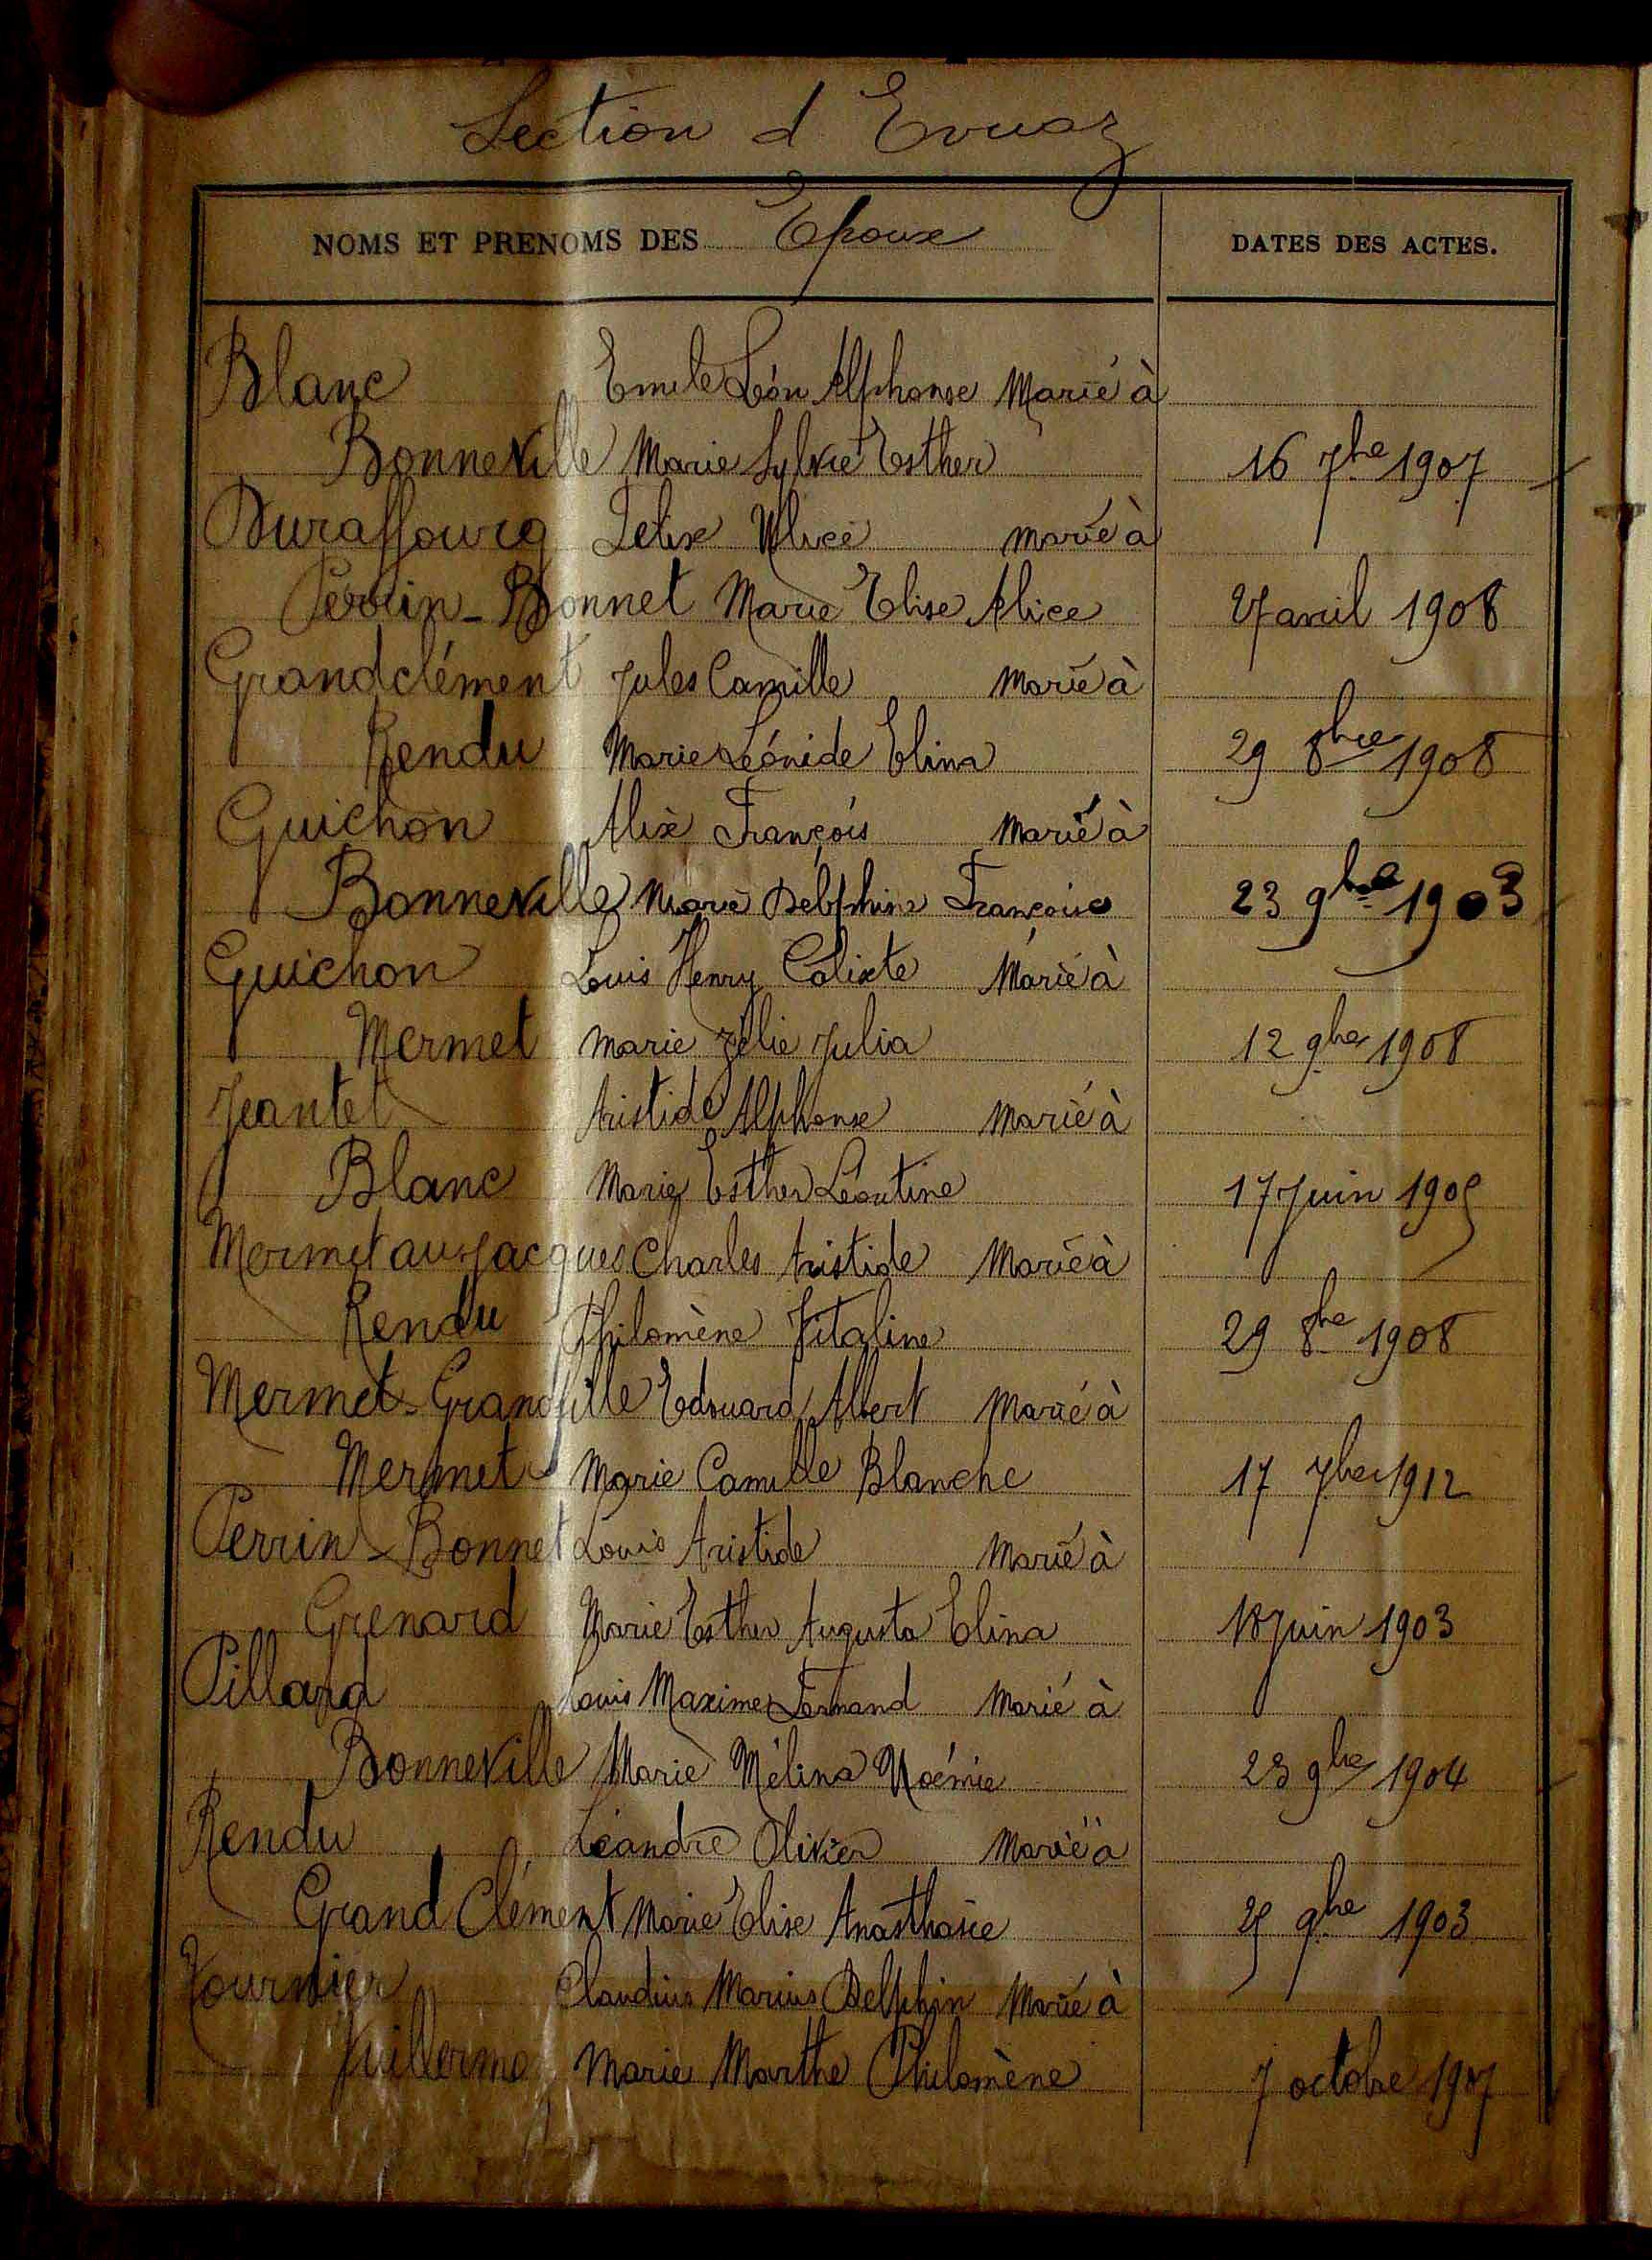 Section d'Evuaz
NOMS ET PRENOMS DES Epoux
DATES DES ACTES.
Blanc Emile Léon Alphonse Marié à
Bonneville Marie Sylvie Esther 16 7bre 1907
Duraffourg Felix Ulice marié à
Perrin-Bonnet Marie Elise Alice 27 avril 1908
Grandclément Jules Camille Marié à
Rendu Marie Léonide Elina 29 8bre 1908
Guichon Alix François Marié à
Bonneville Marie Delphine Françoise 23 9bre 1903
Guichon Louis Henry Calixte Marié à
Mermet Marie Zélie Julia 12 9bre 1908
Jeantet Aristide Alphonse Marié à
Blanc Marie Esther Léontine 17 Juin 1905
Mermet au Jacques Charles Aristide Marié à
Rendu Philomène Vitaline 29 8bre 1908
Mermet-Grandfille Edouard Albert Marié à
Mermet Marie Camille Blanche 17 7bre 1912
Perrin-Bonnet Louis Aristide Marié à
Grenard Marie Esther Augusta Elina 18 Juin 1903
Pillard Louis Maxime Fernand Marié à
Bonneville Marie Mélina Noémie 23 9bre 1904
Rendu Léandre Olivier Marié à
Grand Clément Marie Elise Anasthasie 25 9bre 1903
Tournier Claudius Marius Delphin Marié à
Vuillerme Marie Marthe Philomène 7 octobre 1907